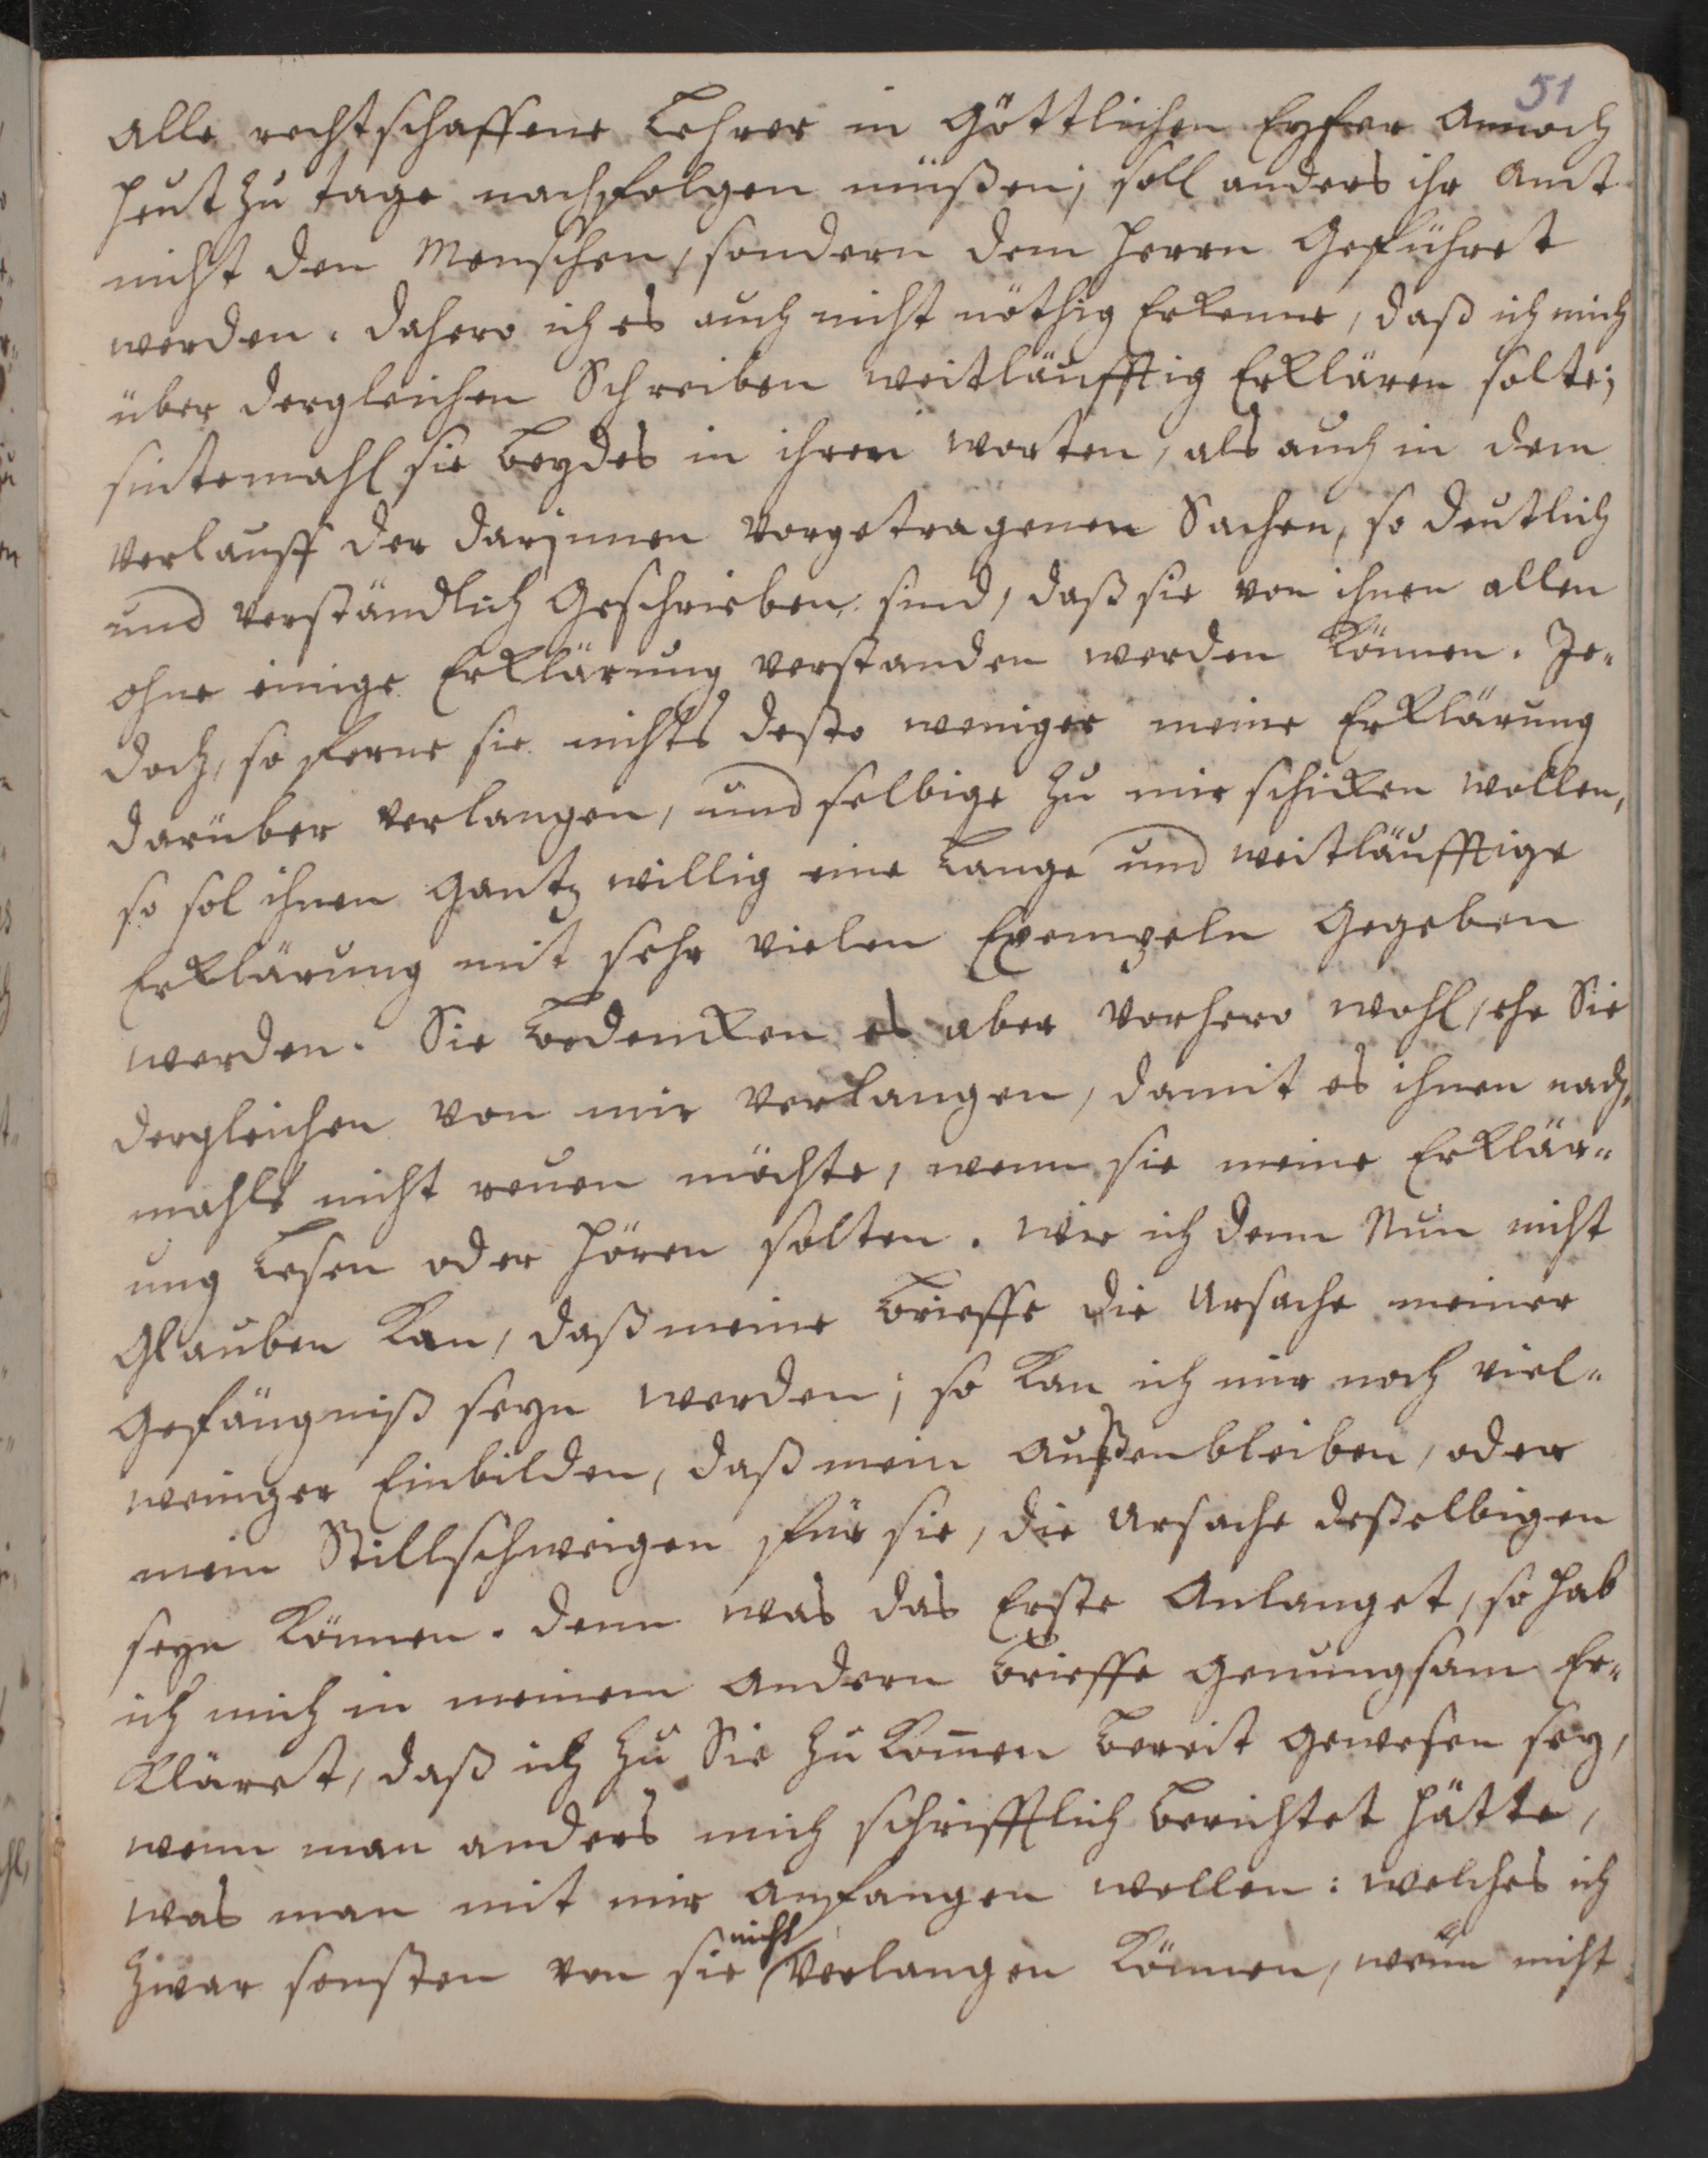 51
alle rechtschaffene Lehrer in Göttlichen Eyfer annoch
heut zu tage nachfolgen müßen; soll anders ihr Amt
nicht den Menschen, sondern dem Herrn Geführet
werden. Dahero ich es auch nicht nöthig Erkenne, daß ich mich
über dergleichen Schreiben weitläufftig Erklären solte;
sintemahl sie beydes in ihren worten, als auch in dem
verlauff der darinnen vorgetragenen Sachen, so deutlich
und verständlich Geschrieben sind, daß sie von ihnen allen
ohne einige Erklärung verstanden werden können. Je-
doch, so ferne sie nichts desto weniger meine Erklärung
darüber verlangen, und selbige zu mir schicken wollen,
so sol ihnen Gantz willig eine Lange und weitläufftige
Erklärung mit sehr vielen Exempeln Gegeben
werden. Sie bedencken es aber vorhero wohl, ehe Sie
dergleichen von mir verlangen, damit es ihnen nach-
mahls nicht reuen möchte, wenn sie meine Erklär-
ung Lesen oder hören solten. Wie ich denn Nun nicht
Glauben kan, daß meine brieffe die Ursache meiner
Gefängniß seyn werden; so kan ich mir noch viel-
weniger Einbilden, daß mein außenbleiben, oder
mein Stillschweigen für sie, die Ursache deßelbigen
seyn können. Denn was das Erste Anlanget, so hab
ich mich in meinem andern brieffe genungsam Er-
kläret, daß ich zu Sie zu kom̄en bereit gewesen sey,
wenn man anders mich schrifftlich berichtet hätte,
was man mit mir anfangen wollen: welches ich
zwar sonsten von sie nicht verlangen können, wenn nicht